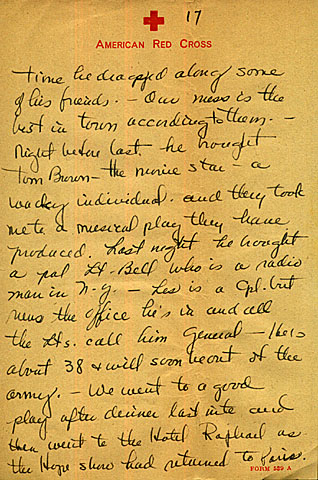 17
AMERICAN RED CROSS
time he dragged along some
of his friends. - Our mess is the
best in town according to them. -
Night before last he brought
Tom Brown - the movie star - a
wacky individual. and they took
me to a musical play they have
produced. Last night he brought
a pal Lt. Bell who is a radio
man in N.Y. - Les is a Cpl. but
runs the office he's in and all
the Lts. call him General - He is
about 38 & will soon be out of the
army. - We went to a good
play after dinner last nite and
then went to the Hotel Raphael as
the Hope show had returned to Paris.
FORM 539 A